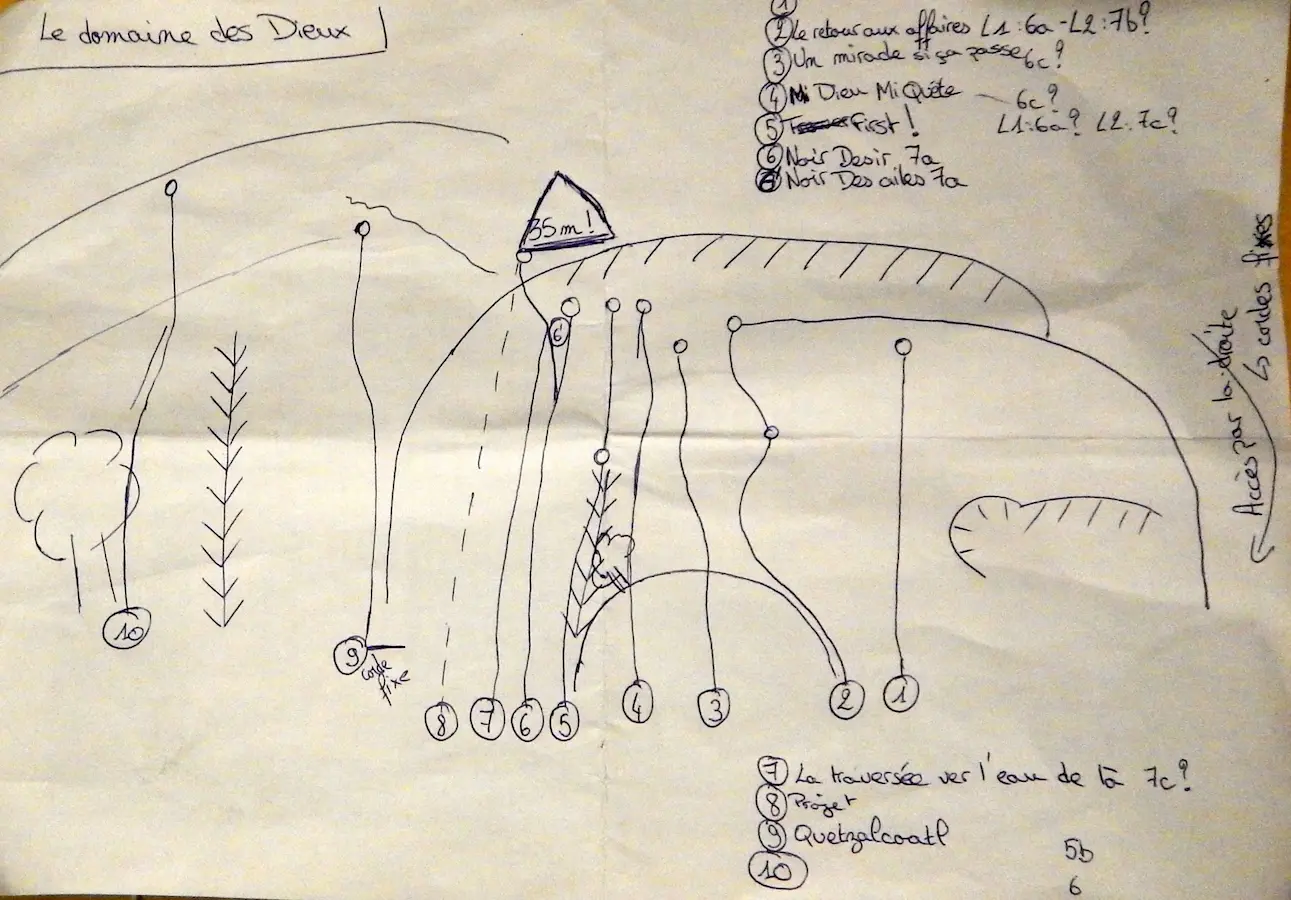 Le domaine des Dieux
1
2 Le retour aux affaires L1:6a-L2:7b?
3 Un miracle si ça passe 6c?
4 Mi Dieu Mi Quête 6c?
5 First! L1:6a? L2:7c?
6 Noir Desir 7a
Noir Des ailes 7a
35m!
6
Accès par la droite
↳ cordes fixes
10
9
corde
fixe
8 7 6 5 4 3 2 1
7 La traversée ver l'eau de là 7c?
8 Projet
9 Quetzalcoatl 5b
10 6